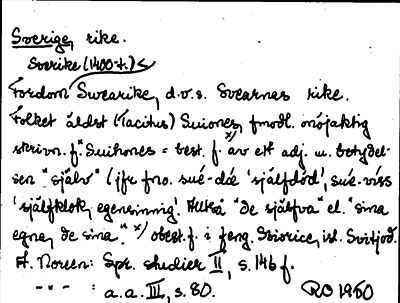 Sverige, rike.
Sverike (1400-t.) <
Fordom Swearike, d.v.s. Svearnas rike.
Folket äldst (Tacitus) Suiones, fmodl. onöjaktig
skrivn. f. "Suihones = best. f. x) av ett adj. m. betydel-
sen "själv" (jfr fno. sué-dǿ 'själfdöd', sué-viss
'själfklok, egensinnig'. Alltså "de själfva" el. "sina
egna, de sina." x) obest. f. i feng. Sviorice, isl. Svitjod.
A. Noreen: Spr. studier II, s. 146 f.
" " : a.a. III, s. 80. RO 1950